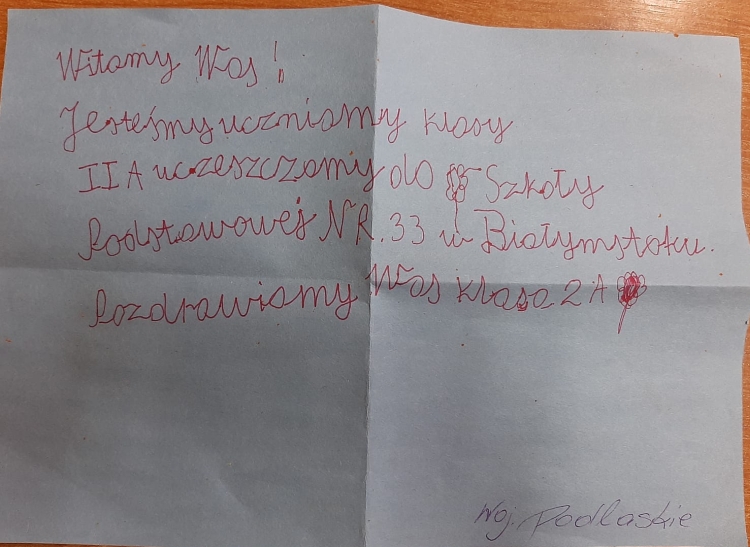 Witamy Was!
Jesteśmy uczniamy klasy
II A uczeszczamy do Szkoły
Podstawowej NR. 33 w Białymstoku.
Pozdrawiamy Was klasa 2 A
Woj. Podlaskie